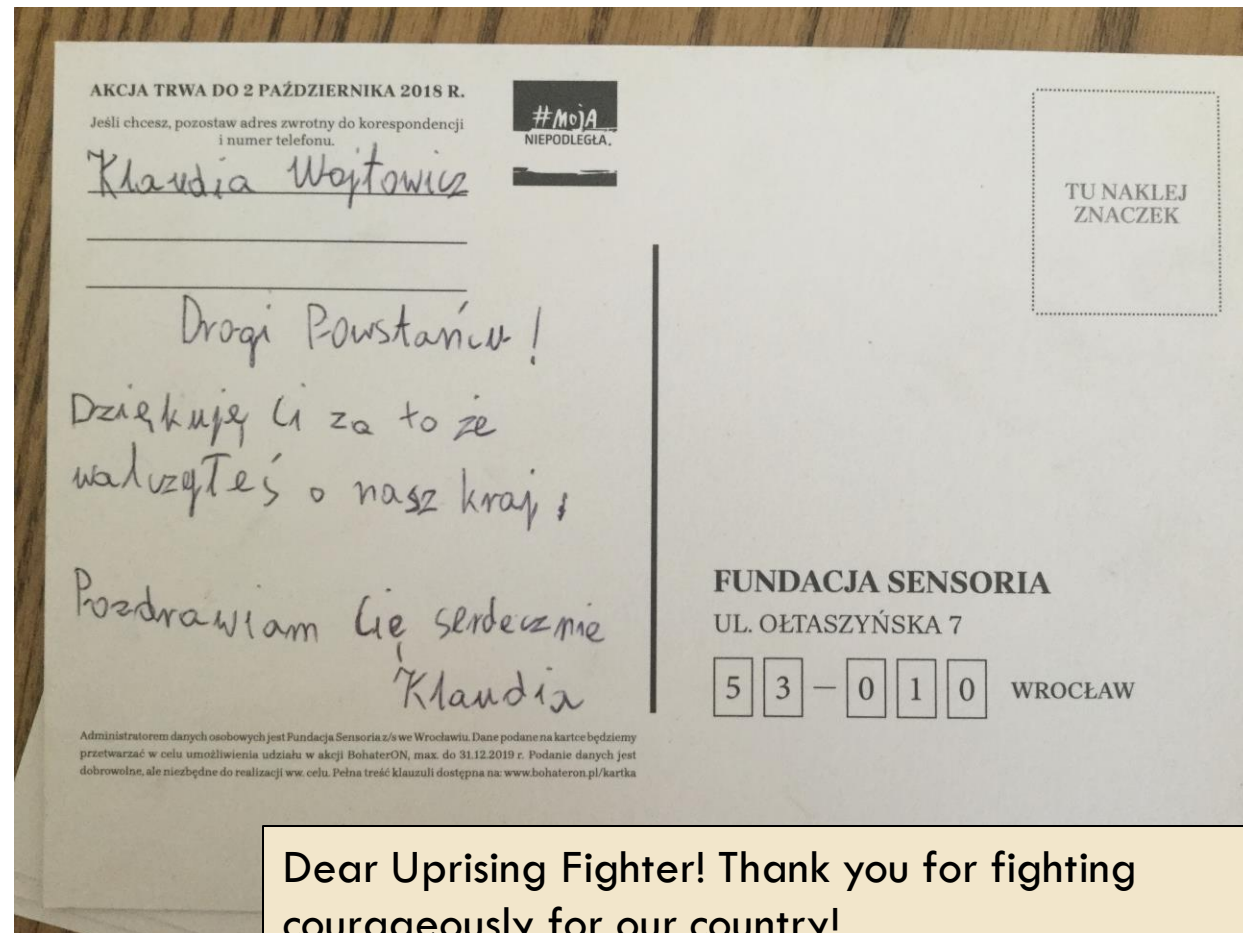 AKCJA TRWA DO 2 PAŹDZIERNIKA 2018 R.
Jeśli chcesz, pozostaw adres zwrotny do korespondencji
i numer telefonu.
Klaudia Wojtowicz
#MOJA
NIEPODLEGŁA.
TU NAKLEJ
ZNACZEK
Drogi Powstańcu!
Dziękuję Ci za to że
walczyłeś o nasz kraj
Pozdrawiam Cię serdecznie
Klaudia
Administratorem danych osobowych jest Fundacja Sensoria z/s we Wrocławiu. Dane podane na kartce będziemy
przetwarzać w celu umożliwienia udziału w akcji BohaterON, max. do 31.12.2019 r. Podanie danych jest
dobrowolne, ale niezbędne do realizacji ww. celu. Pełna treść klauzuli dostępna na: www.bohateron.pl/kartka
FUNDACJA SENSORIA
UL. OŁTASZYŃSKA 7
53-010 WROCŁAW
Dear Uprising Fighter! Thank you for fighting
courageously for our country!